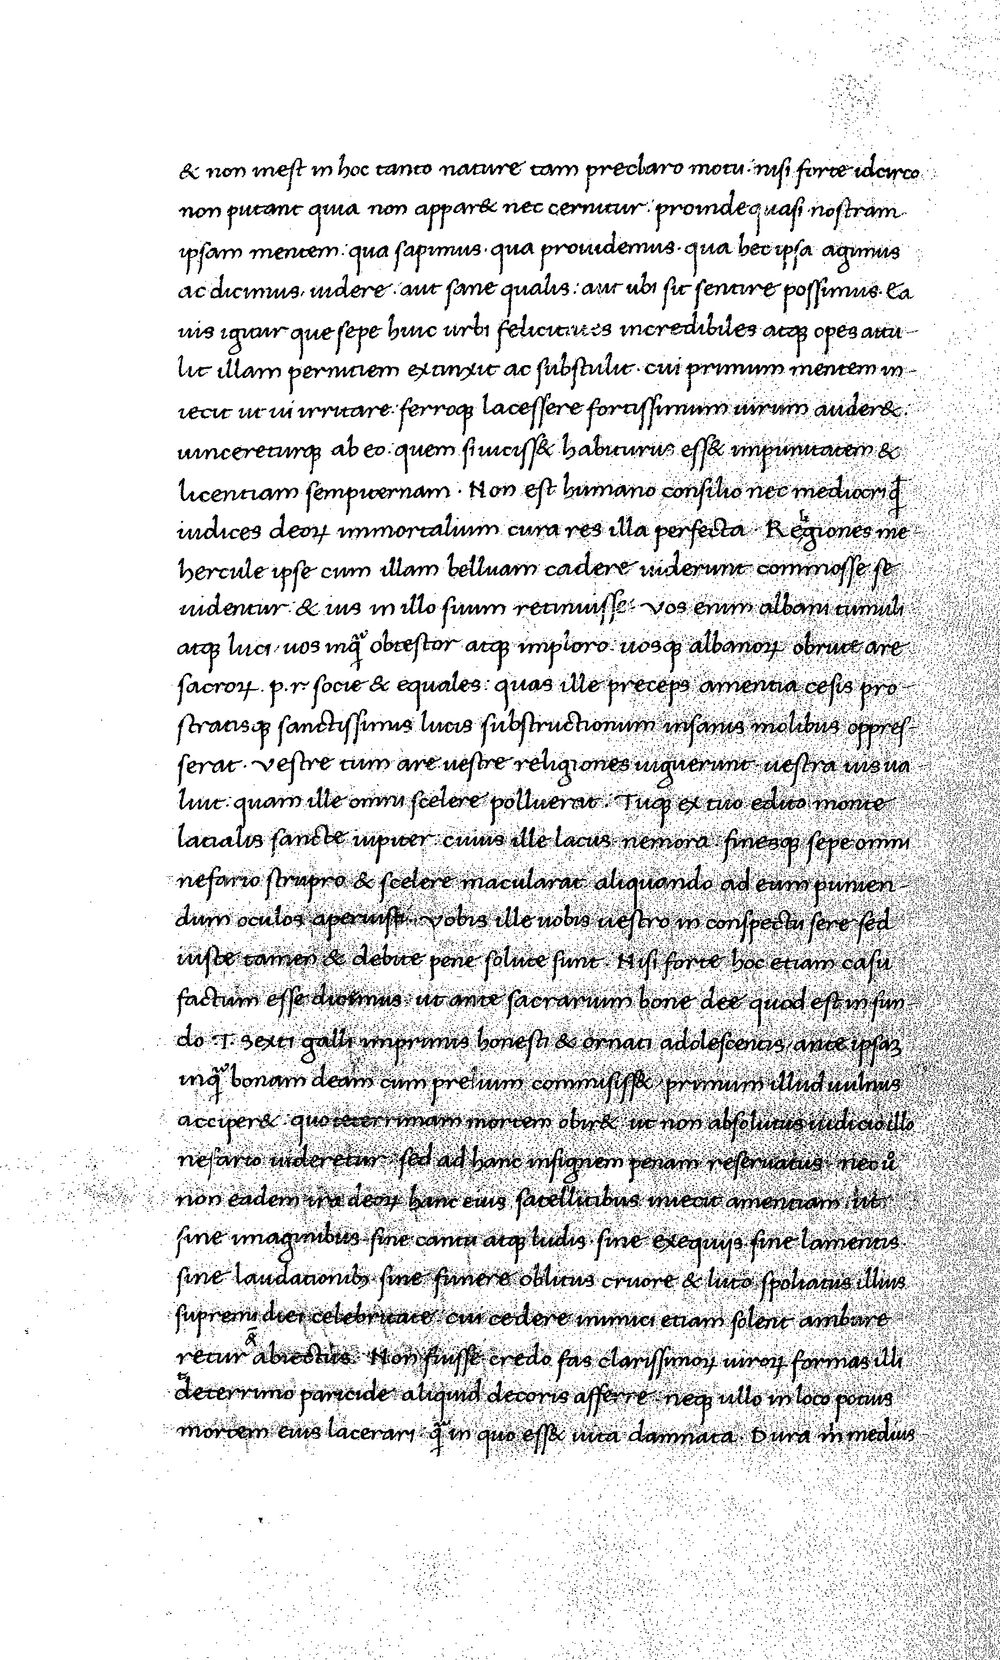 & non inest in hoc tanto nature tam preclaro motu. nisi forte idcirco
non putant quia non appar& nec cernitur. proinde quasi nostram
ipsam mentem. qua sapimus. qua prouidemus. qua hec ipsa agimus
ac dicimus. uidere. aut sane qualis. aut ubi sit sentire possimus. Ea
uis igitur que sepe huic urbi felicitates incredibiles atqꝫ opes attu-
lit illam perniciem extinxit ac substulit. cui primum mentem in-
iecit ut ui irritare ferroqꝫ lacessere fortissimum uirum auder&.
uincereturqꝫ ab eo. quem si uiciss& habiturus ess& impunitatem &
licentiam sempiternam. Non est humano consilio nec mediocri qͥdē
iudices deoꝝ immortalium cura res illa perfecta. Regiones me-
hercule ipse cum illam belluam cadere uiderunt commosse se
uidentur. & ius in illo suum retinuisse. Vos enim albani tumuli
atqꝫ luci. uos inqͣ obtestor atqꝫ imploro. uosqꝫ albanoꝝ obrute are
sacroꝝ. p. r. socie & equales. quas ille preceps amentia cesis pro-
stratisqꝫ sanctissimis lucis substructionum insanis molibus oppres-
serat. Vestre tum are uestre religiones uiguerunt. uestra uis ua-
luit. quam ille omni scelere polluerat. Tuqꝫ ex tuo edito monte
latialis sancte iupiter. cuius ille lacus nemora. finesqꝫ sepe omni
nefario strupro & scelere macularat aliquando ad eum punien-
dum oculos aperuisti. Vobis ille uobis uestro in conspectu sere sed
iuste tamen & debite pene solute sunt. Nisi forte hoc etiam casu
factum esse dicimus. ut ante sacrarium bone dee quod est in fun-
do .T. Sexti galli imprimis honesti & ornati adolescentis, ante ipsaꝫ
inqͣ bonam deam cum prelium commisiss& primum illud uulnus
acciper& quo teterrimam mortem obir& ut non absolutus iudicio illo
nefario uideretur. sed ad hanc insignem penam reseruatus. nec ů
non eadem ira deoꝝ hanc eius satellitibus iniecit amentiam. ut
sine imaginibus sine cantu atqꝫ ludis. sine exequijs. sine lamentis.
sine laudationibꝫ sine funere oblitus cruore & luto spoliatus illius
supremi diei celebritate. cui cedere inimici etiam solent ambure-
retur abiectus. Non fuisse credo fas clarissimoꝝ uiroꝝ formas illi
deterrimo paricide aliquid decoris afferre. neqꝫ ullo in loco potius
mortem eius lacerari. qͣ in quo ess& uita damnata. Dura in medius